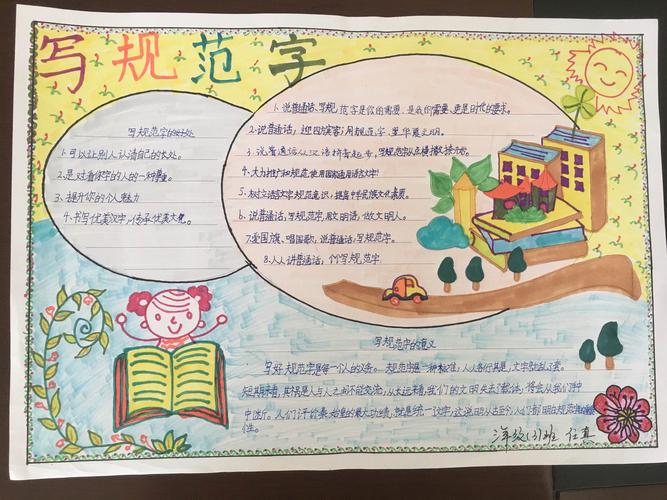 写规范字
写规范字的好处
1.可以让别人认清自己的长处。
2.是对看你字的人的一种尊重。
3.提升你的个人魅力
4.书写优美汉字,传承优美文化。
1.说普通话、写规范字是你的需要、是我的需要、更是时代的要求。
2.说普通话,迎四方宾客;用规范字,显华夏文明。
3.说普通话从汉语拼音起步,写规范字从点横撇捺开始。
4.大力推广和规范使用国家通用语言文字!
5.树立语言文字规范意识,提高中华民族文化素质。
6.说普通话,写规范字,用文明语,做文明人。
7.爱国旗、唱国歌,说普通话,写规范字。
8.人人讲普通话,们写规范字.
写规范字的意义
写好规范字是每一个人的义务。规范字是一种标准性,人人各行其是,文字就乱了套。
短期来看,其後果是人与人之间不能交流,从长远来看,我们的文明失去了载体,将会从我们手中
中断。人们评价秦始皇的最大功绩,就是统一汉字,这说明从古至今人们都明白规范字的重要
性。
三年级(3)班 任真